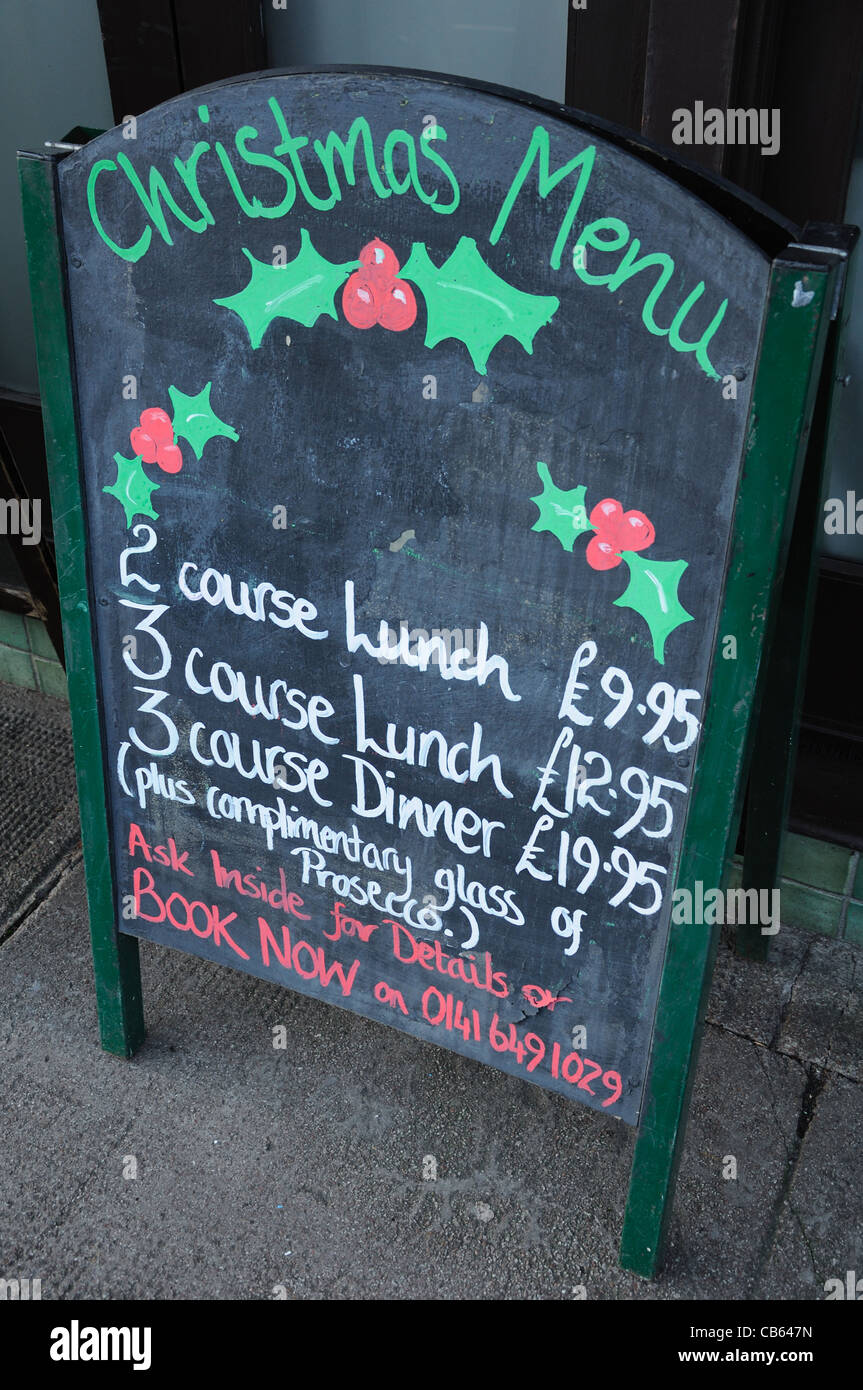 Christmas Menu
2 course Lunch £9.95
3 course Lunch £12.95
3 course Dinner £19.95
(plus complimentary glass of
Prosecco.)
Ask Inside for Details or
BOOK NOW on 0141 6491029
alamy
Image ID: CB647N
www.alamy.com